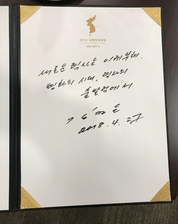 새로운 력사는 이제부터.
평화의 시대, 력사의
출발점에서
김정은
2018. 4. 27